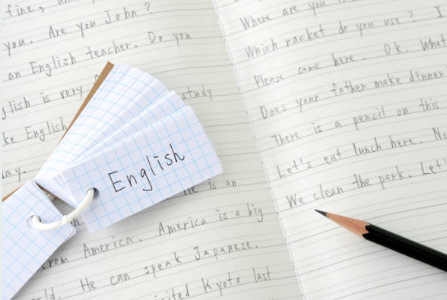 fine,
you. Are you John?
an English teacher. Do you
English is very
study
like English
English
is an
from America. America is a big
He can speak Japanese.
visited Kyoto last
Where are you
Which racket do you use? I
Please come here. OK. What
Does your father make dinner
There is a pencil on this
Let's eat lunch here. No
We clean the park. Let